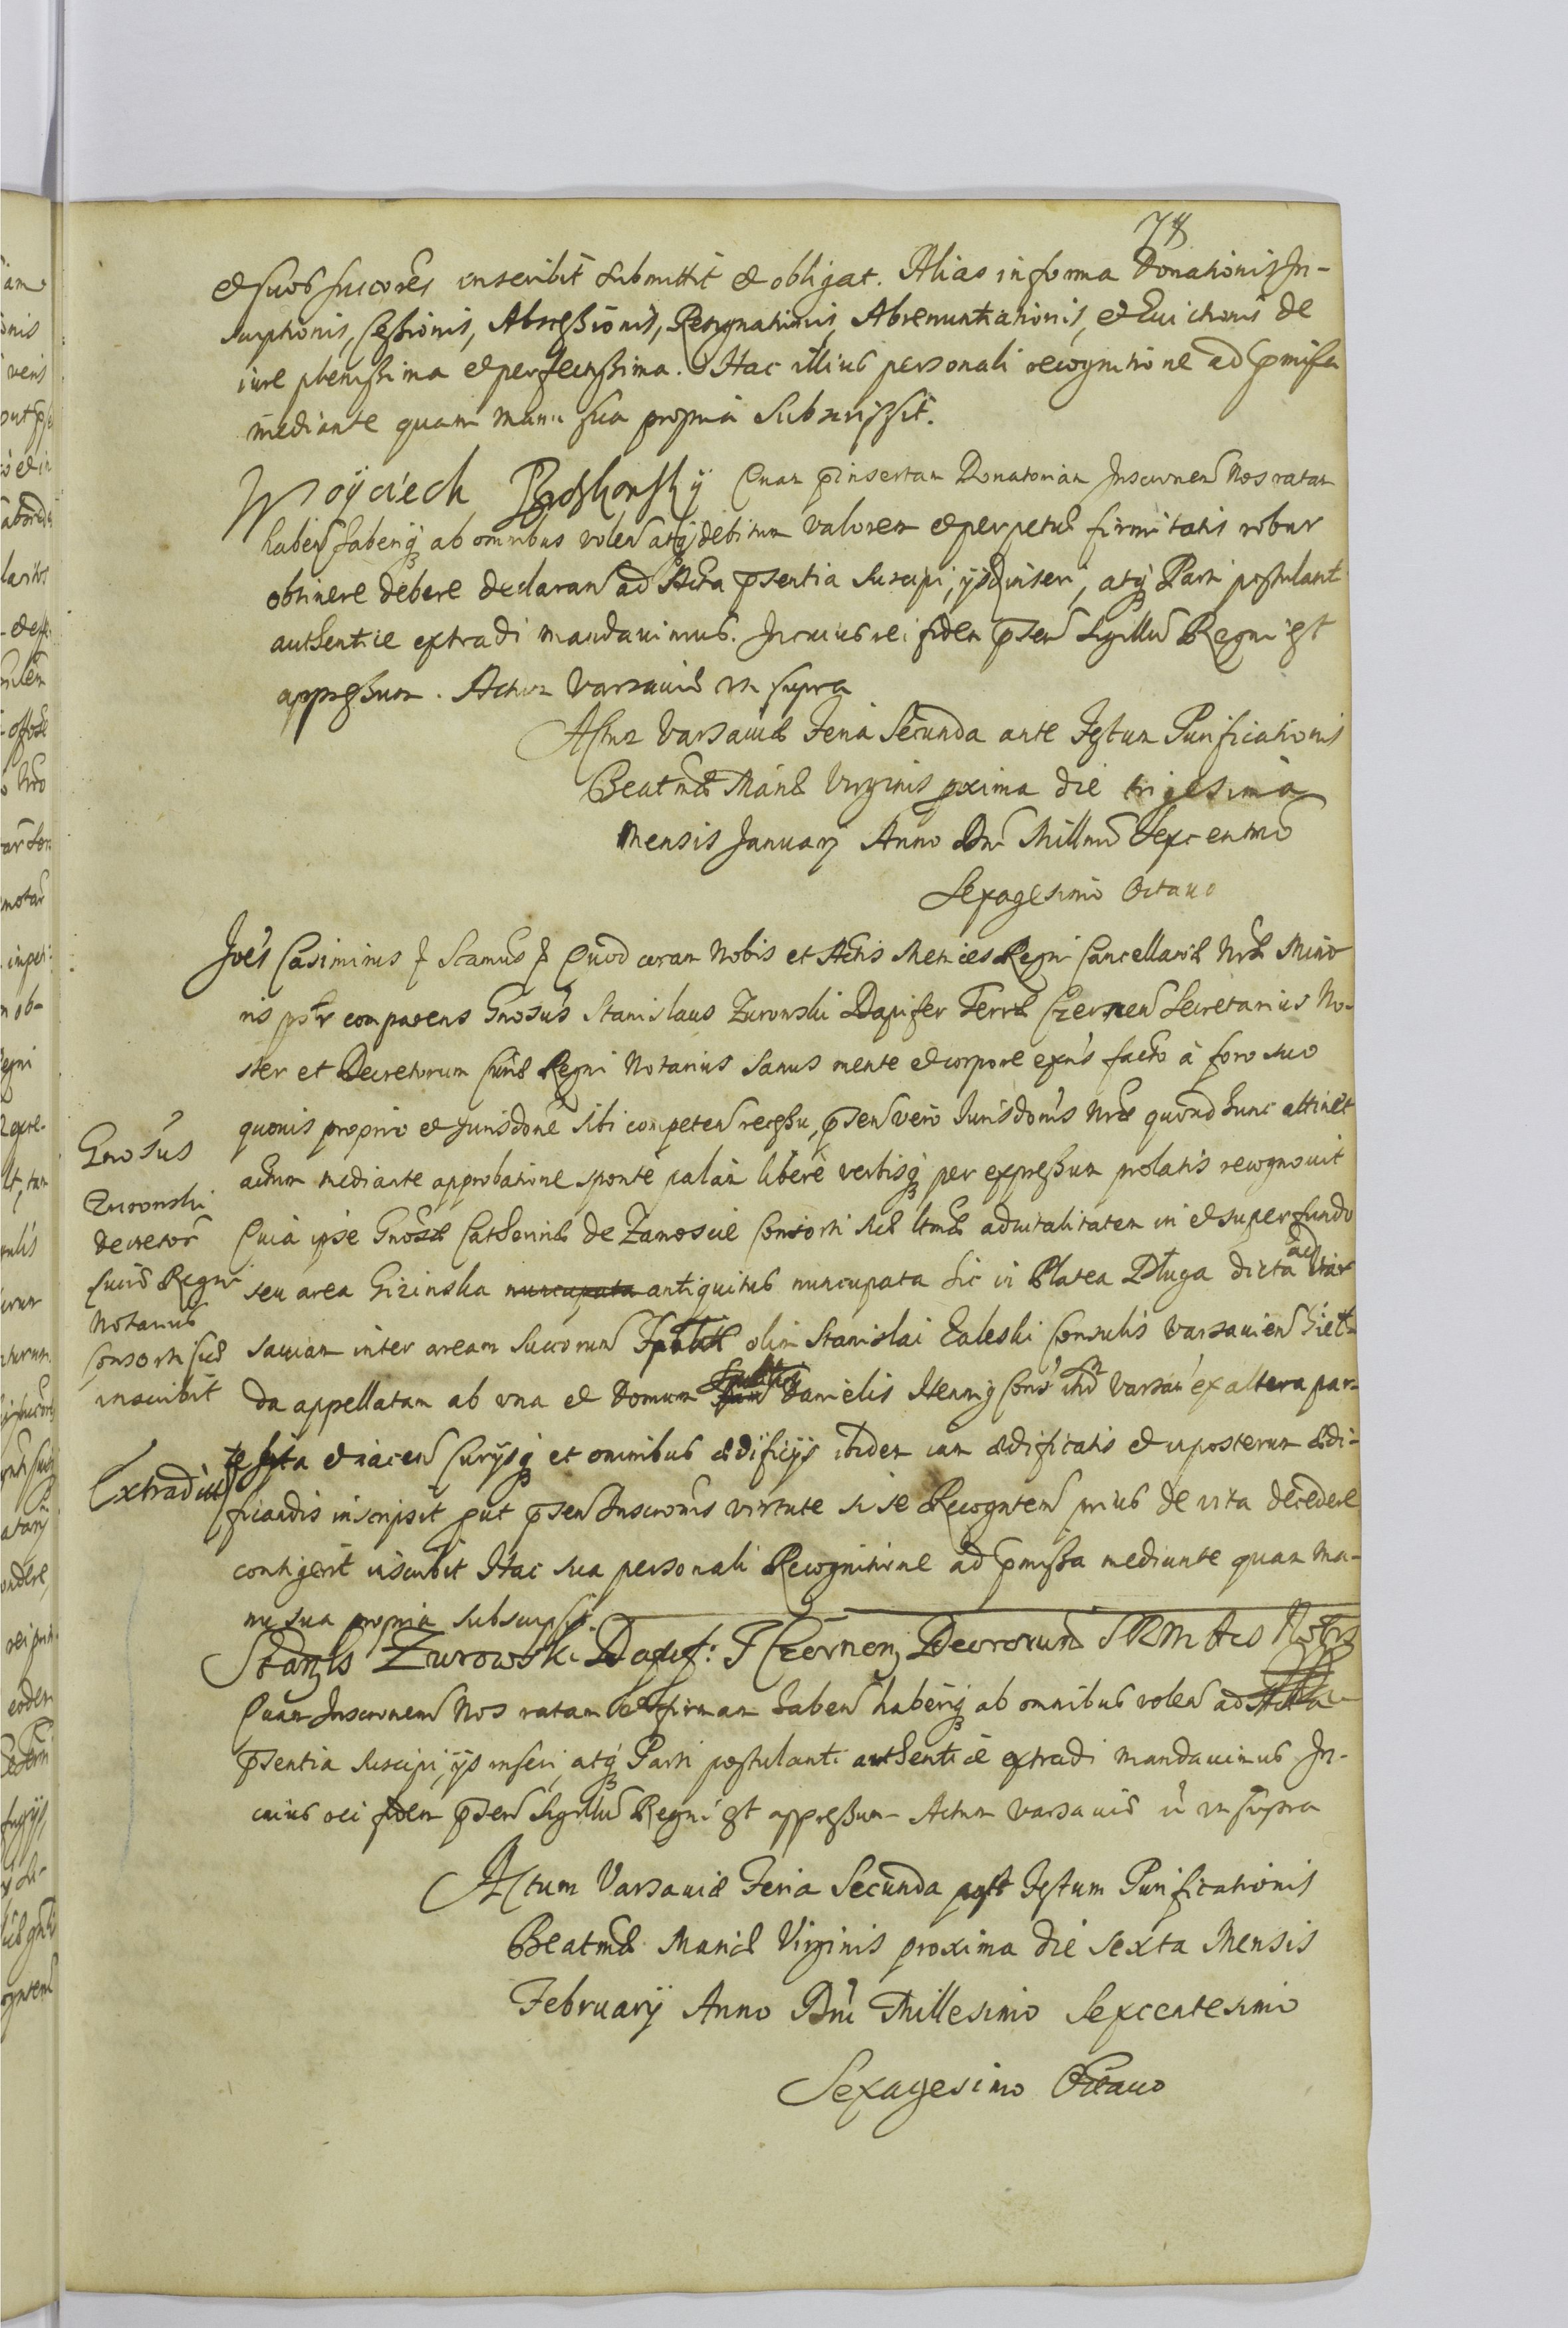 78
et suos succores inscribit submittit et obligat. Alias in forma Donationis In-
scriptionis, Cessionis, Abscessionis, Resignationis, Abrenuntiationis, et Euictionis de
iure plenissima et perfectissima. Hac illius personali recognitione ad pmissa
mediante quam manu sua propria subscripsit.
Woÿciech Quam pinsertam Donatoriam Inscrnem Nos ratam
haben haberiq ab omnibus volen atq debitum valorem et perpetuæ firmitatis robur
obtinere debere declaran ad Acta psentia suscipi, ijsq inseri, atq Parti postulanti
authentice extradi mandauimus. In cuius rei fidem psen Sigillu Regni est
appressum. Actum Varsauiæ ut supra
Actum Varsauiæ Feria Secunda ante Festum Purificationis
Beatmæ Mariæ Virginis pxima die trigesima
Mensis Januarij Anno Dni Millmo Sexcentmo
Sexagesimo Octauo
Joes Casimirus Scamus Quod coram Nobis et Actis Metrices Regni Cancellariæ Nræ Mino
ris psr comparens Gnosus Stanislaus Zurowski Dapifer Terræ Czernen Secretarius No-
ster et Decretorum Curiæ Regni Notarius Sanus mente et corpore exns facto à foro suo
quouis proprio et jurisdone sibi competen recessu, psen vero Jurisdonis Nræ quond hunc attinet
actum mediante approbatione sponte palam libere verbisq per expressum prolatis recognouit
Quia ipse Gnosæ Catherinæ de Zamoscie Consorti suæ ltmæ aduitalitatem in et super fundo
seu area Gizinska nuncupata antiquitus nuncupata sic in Platea Długa dicta ad Var
sauiam inter aream Succorum olim Stanislai Zaleski Consulis Varsauien
da appellatam ab vna et Domum Danielis Hennig Varsau ex altera par-
te sita et iacen Curijsq et omnibus ædificijs ibidem iam ædificatis et inposterum ædi-
ficandis inscripsit put psen Inscronis virtute si se Recognten prius de vita decedere
contigerit inscribit Hac sua personali Recognitione ad pmissa mediante quam ma-
nu sua propria subscripsit
Stanzls Zurowski Dapif: T Czernen Decrorum SRM
Quam Inscronem Nos ratam et firmam haben haberiq ab omnibus volen ad Acta
psentia suscipi, ijs inseri, atq Parti postulanti authentice extradi mandauimus. In-
cuius rei fidem psen Sigillu Regni est appressum Actum Varsauiæ ut supra
Actum Varsauiæ Feria Secunda post Festum Purificationis
Beatmæ Mariæ Virginis proxima die sexta Mensis
Februarij Anno Dni Millesimo Sexcentesimo
Sexagesimo Octauo
Gnosus
Zurowski
decretor
Curiæ Regni
Notarius
Consorti suæ
inscribit
Extraditu